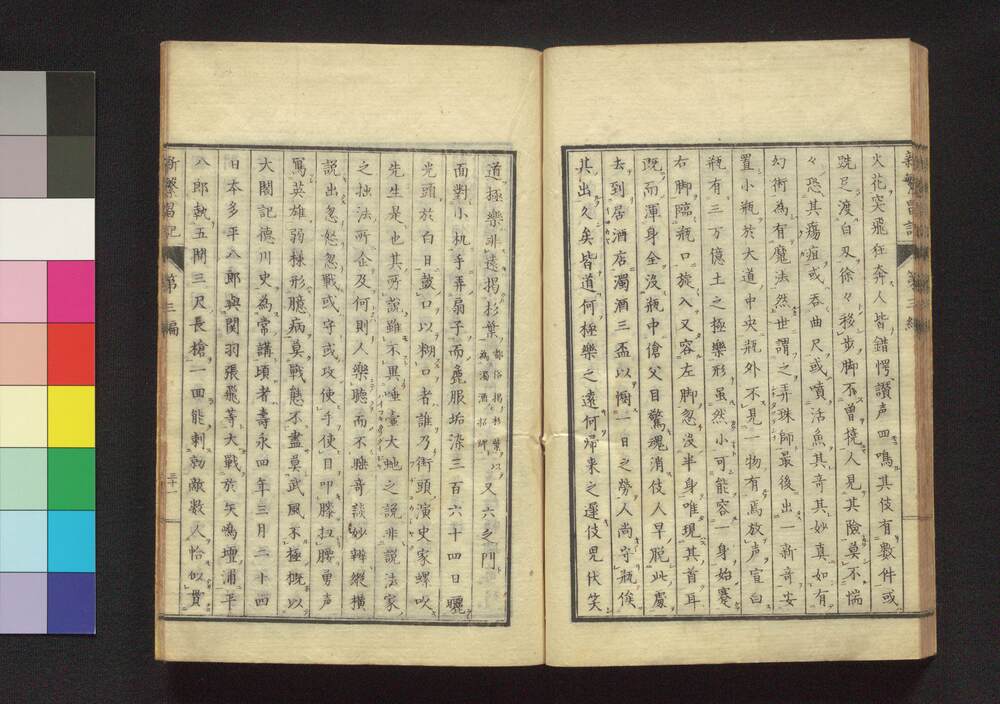 火花突飛狂奔人皆錯愕讃声四鳴其伎有數件或
跣足渡白刃徐々移步脚不曾撓人見其險莫不惴
々恐其瘍疽或吞曲尺或噴活魚其奇其妙真如有
幻術為有魔法然世謂之弄珠師最後出一新奇安
置小瓶於大道中央瓶外不見一物有焉放声宣曰
瓶有三万億土之極樂形虽然小可能容一身始蹇
右脚臨瓶口旋入又容左脚忽沒半身唯現其首耳
既而渾身全沒瓶中傖父目驚魂消伎人早脱此處
去到居酒店濁酒三盃以慰一日之勞人尚守瓶俟
其出久矣皆道何極樂之遠何帰来之遲伎児代笑
新繁昌記 第三編
道極樂非遠揭杉葉都俗揭杉葉以為濁酒招牌又六之門
面對小机手弄扇子而麁服垢染三百六十四日曬
光頭於白日鼓口以糊口者誰乃街頭演史家螺吹
先生是也其所說雖不異唾壷大虵之說非說法家
之拙法所企及何則人樂聽而不睡奇談妙辨縱橫
說出忽怒忽戰或守或攻使手使目叩膝扭腰勇声
寫英雄弱様形臆病莫戰態不盡莫武風不極概以
大閤記德川史為常講頃者壽永四年三月二十四
日本多平八郎與関羽張飛等大戰於矢嶋壇浦平
八郎執五間三尺長槍一回能刺勍敵数人恰似貫
新繁昌記 第三編 三十一